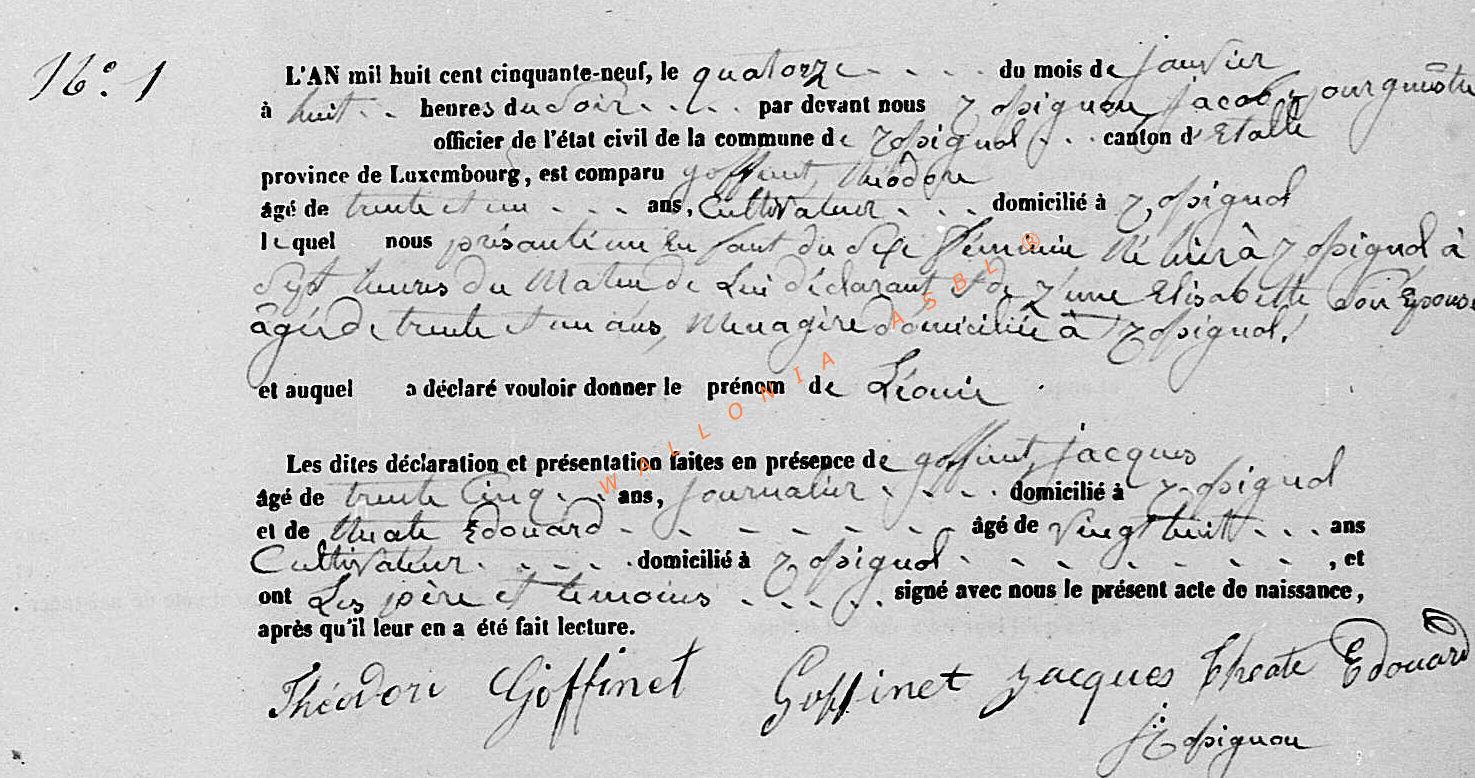 N°. 1
L'AN mil huit cent cinquante-neuf, le quatorze - - - - du mois de janvier
à huit - - heures du soir - - - - par devant nous Rossignon jacob, Bourguestre
officier de l'état civil de la commune de Rossignol - - - canton d'Etalle
province de Luxembourg, est comparu goffinet, théodore
âgé de trente et un - - - ans, Cultivateur - - - domicilié à Rossignol
lequel nous présenté un Enfant du sexe féminin Né hier à Rossignol à
Sept heures du Matin de Lui déclarant et de Elisabette son Epouse
âgée de trente et un ans, Menagère domiciliée à Rossignol.
et auquel a déclaré vouloir donner le prénom de Léonie
Les dites déclaration et présentation faites en présence de goffinet, jacques
âgé de trente Cinq - - ans, journalier - - - - domicilié à Rossignol
et de theate Edouard - - - - - - - âgé de Vingt huit - - - ans
Cultivateur - - - - - domicilié à Rossignol - - - - - - - , et
ont Les père et temoins - - - - - signé avec nous le présent acte de naissance,
après qu'il leur en a été fait lecture.
Théodore Goffinet Goffinet jacques theate Edouard
Rossignon
WALLONIA ASBL ®